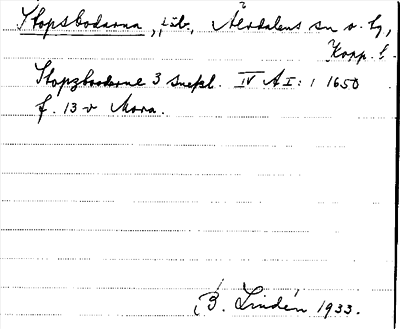 Stopsbodarna, fäb., Älvdalens sn o. tg,
Kopp. l.
Stopzboodarne 3 snefl. IV A I: 1 1650
f. 13 v Mora.
B. Lindén 1933.